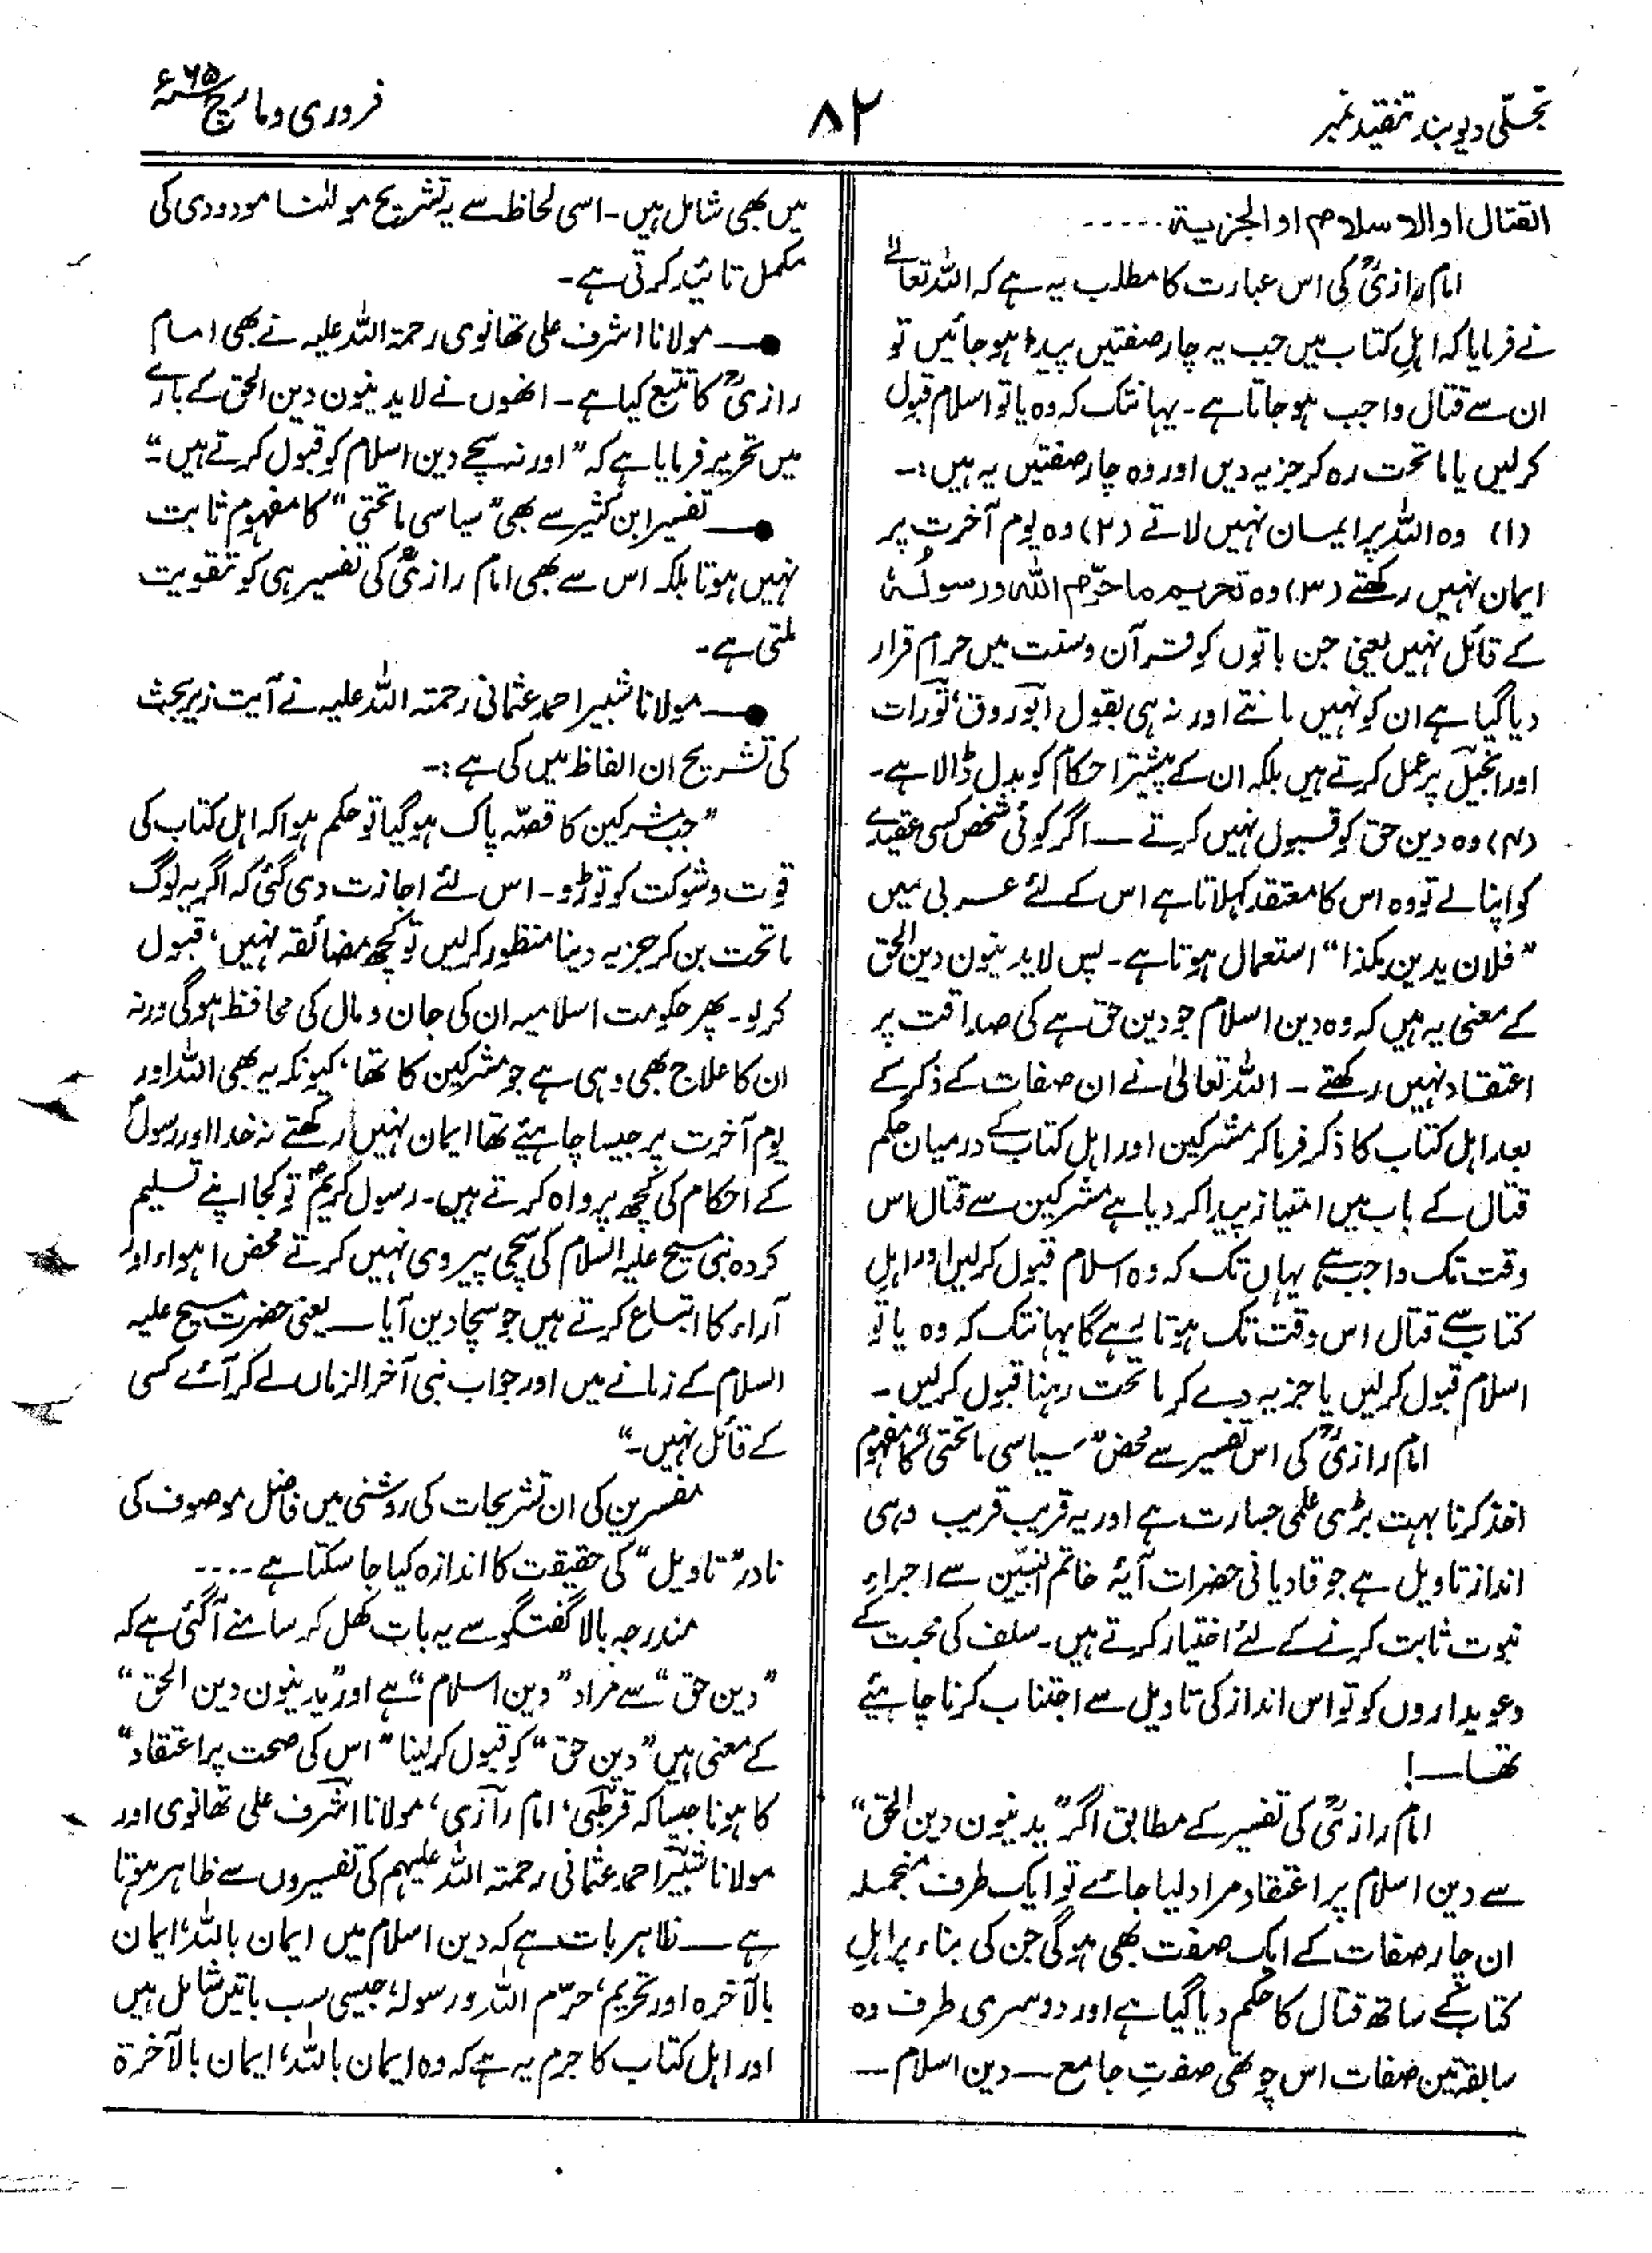 تجلّی دیوبند تنقید نمبر
۸۲
فروری و مارچ سنہ ۶۵ء
القتال او الاسلام او الجزیۃ.....
امام رازیؒ کی اس عبارت کا مطلب یہ ہے کہ اللہ تعالےٰ
نے فرمایا کہ اہلِ کتاب میں جب یہ چار صفتیں پیدا ہو جائیں تو
ان سے قتال واجب ہو جاتا ہے۔ یہانتک کہ وہ یا تو اسلام قبول
کرلیں یا ماتحت رہ کر جزیہ دیں اور وہ چار صفتیں یہ ہیں:۔
(۱) وہ اللہ پر ایمان نہیں لاتے (۲) وہ یوم آخرت پر
ایمان نہیں رکھتے (۳) وہ تحریم ما حرّم اللہ ورسولُہٗ
کے قائل نہیں یعنی جن باتوں کو قرآن و سنت میں حرام قرار
دیا گیا ہے ان کو نہیں مانتے اور نہ ہی بقول ابوروق، تورات
اور انجیل پر عمل کرتے ہیں بلکہ ان کے بیشتر احکام کو بدل ڈالا ہے۔
(۴) وہ دین حق کو قبول نہیں کرتے — اگر کوئی شخص کسی عقیدے
کو اپنا لے تو وہ اس کا معتقد کہلاتا ہے اس کے لئے عربی میں
”فلان یدین بکذا“ استعمال ہوتا ہے۔ پس لایدینون دین الحق
کے معنی یہ ہیں کہ وہ دین اسلام جو دین حق ہے کی صداقت پر
اعتقاد نہیں رکھتے ۔ اللہ تعالیٰ نے ان صفات کے ذکر کے
بعد اہل کتاب کا ذکر فرما کر مشرکین اور اہل کتاب کے درمیان حکم
قتال کے باب میں امتیاز پیدا کر دیا ہے مشرکین سے قتال اس
وقت تک واجب ہے یہاں تک کہ وہ اسلام قبول کرلیں اور اہلِ
کتاب سے قتال اس وقت تک ہوتا رہے گا یہانتک کہ وہ یا تو
اسلام قبول کرلیں یا جزیہ دے کر ماتحت رہنا قبول کرلیں۔
امام رازیؒ کی اس تفسیر سے محض ”سیاسی ماتحتی“ کا مفہوم
اخذ کرنا بہت بڑی علمی جسارت ہے اور یہ قریب قریب وہی
انداز تاویل ہے جو قادیانی حضرات آیۂ خاتم النبیّین سے اجراءِ
نبوت ثابت کرنے کے لئے اختیار کرتے ہیں۔ سلف کی محبت کے
دعویداروں کو تو اس انداز کی تاویل سے اجتناب کرنا چاہیئے
تھا—!
امام رازیؒ کی تفسیر کے مطابق اگر ”یدینون دین الحق“
سے دین اسلام پر اعتقاد مراد لیا جائے تو ایک طرف منجملہ
ان چار صفات کے ایک صفت بھی ہوگی جن کی بناء پر اہلِ
کتاب کے ساتھ قتال کا حکم دیا گیا ہے اور دوسری طرف وہ
سابقہ تین صفات اس چوتھی صفتِ جامع — دین اسلام —
میں بھی شامل ہیں۔ اسی لحاظ سے یہ تشریح مولٰنا مودودی کی
مکمل تائید کرتی ہے۔
●— مولانا اشرف علی تھانوی رحمۃ اللہ علیہ نے بھی امام
رازیؒ کا تتبع کیا ہے۔ انھوں نے لایدینون دین الحق کے بارے
میں تحریر فرمایا ہے کہ ”اور نہ سچے دین اسلام کو قبول کرتے ہیں“۔
●— تفسیر ابن کثیر سے بھی ”سیاسی ماتحتی“ کا مفہوم ثابت
نہیں ہوتا بلکہ اس سے بھی امام رازیؒ کی تفسیر ہی کو تقویت
ملتی ہے۔
●— مولانا شبیر احمد عثمانی رحمتہ اللہ علیہ نے آیت زیر بحث
کی تشریح ان الفاظ میں کی ہے:۔
”جب مشرکین کا قصّہ پاک ہو گیا تو حکم ہوا کہ اہل کتاب کی
قوت و شوکت کو توڑو۔ اس لئے اجازت دی گئی کہ اگر یہ لوگ
ماتحت بن کر جزیہ دینا منظور کرلیں تو کچھ مضائقہ نہیں، قبول
کرلو۔ پھر حکومت اسلامیہ ان کی جان و مال کی محافظ ہوگی ورنہ
ان کا علاج بھی وہی ہے جو مشرکین کا تھا، کیونکہ یہ بھی اللہ اور
یوم آخرت پر جیسا چاہیئے تھا ایمان نہیں رکھتے نہ خدا اور رسولؐ
کے احکام کی کچھ پرواہ کرتے ہیں۔ رسول کریمؐ تو کجا اپنے تسلیم
کردہ نبی مسیح علیہ السلام کی سچی پیروی نہیں کرتے محض اہواء اور
آراء کا اتباع کرتے ہیں جو سچا دین آیا — یعنی حضرت مسیح علیہ
السلام کے زمانے میں اور جو اب نبی آخر الزماں لے کر آئے کسی
کے قائل نہیں۔“
مفسرین کی ان تشریحات کی روشنی میں فاضل موصوف کی
نادر ”تاویل“ کی حقیقت کا اندازہ کیا جا سکتا ہے....
مندرجہ بالا گفتگو سے یہ بات کھل کر سامنے آگئی ہے کہ
”دین حق“ سے مراد ”دین اسلام“ ہے اور ”یدینون دین الحق“
کے معنی ہیں ”دین حق“ کو قبول کر لینا ”اس کی صحت پر اعتقاد“
کا ہونا جیسا کہ قرطبی، امام رازی، مولانا اشرف علی تھانوی اور
مولانا شبیر احمد عثمانی رحمتہ اللہ علیہم کی تفسیروں سے ظاہر ہوتا
ہے — ظاہر بات ہے کہ دین اسلام میں ایمان باللہ، ایمان
بالآخرہ اور تحریم، حرّم اللہ ورسولہ، جیسی سب باتیں شامل ہیں
اور اہل کتاب کا جرم یہ ہے کہ وہ ایمان باللہ، ایمان بالآخرۃ